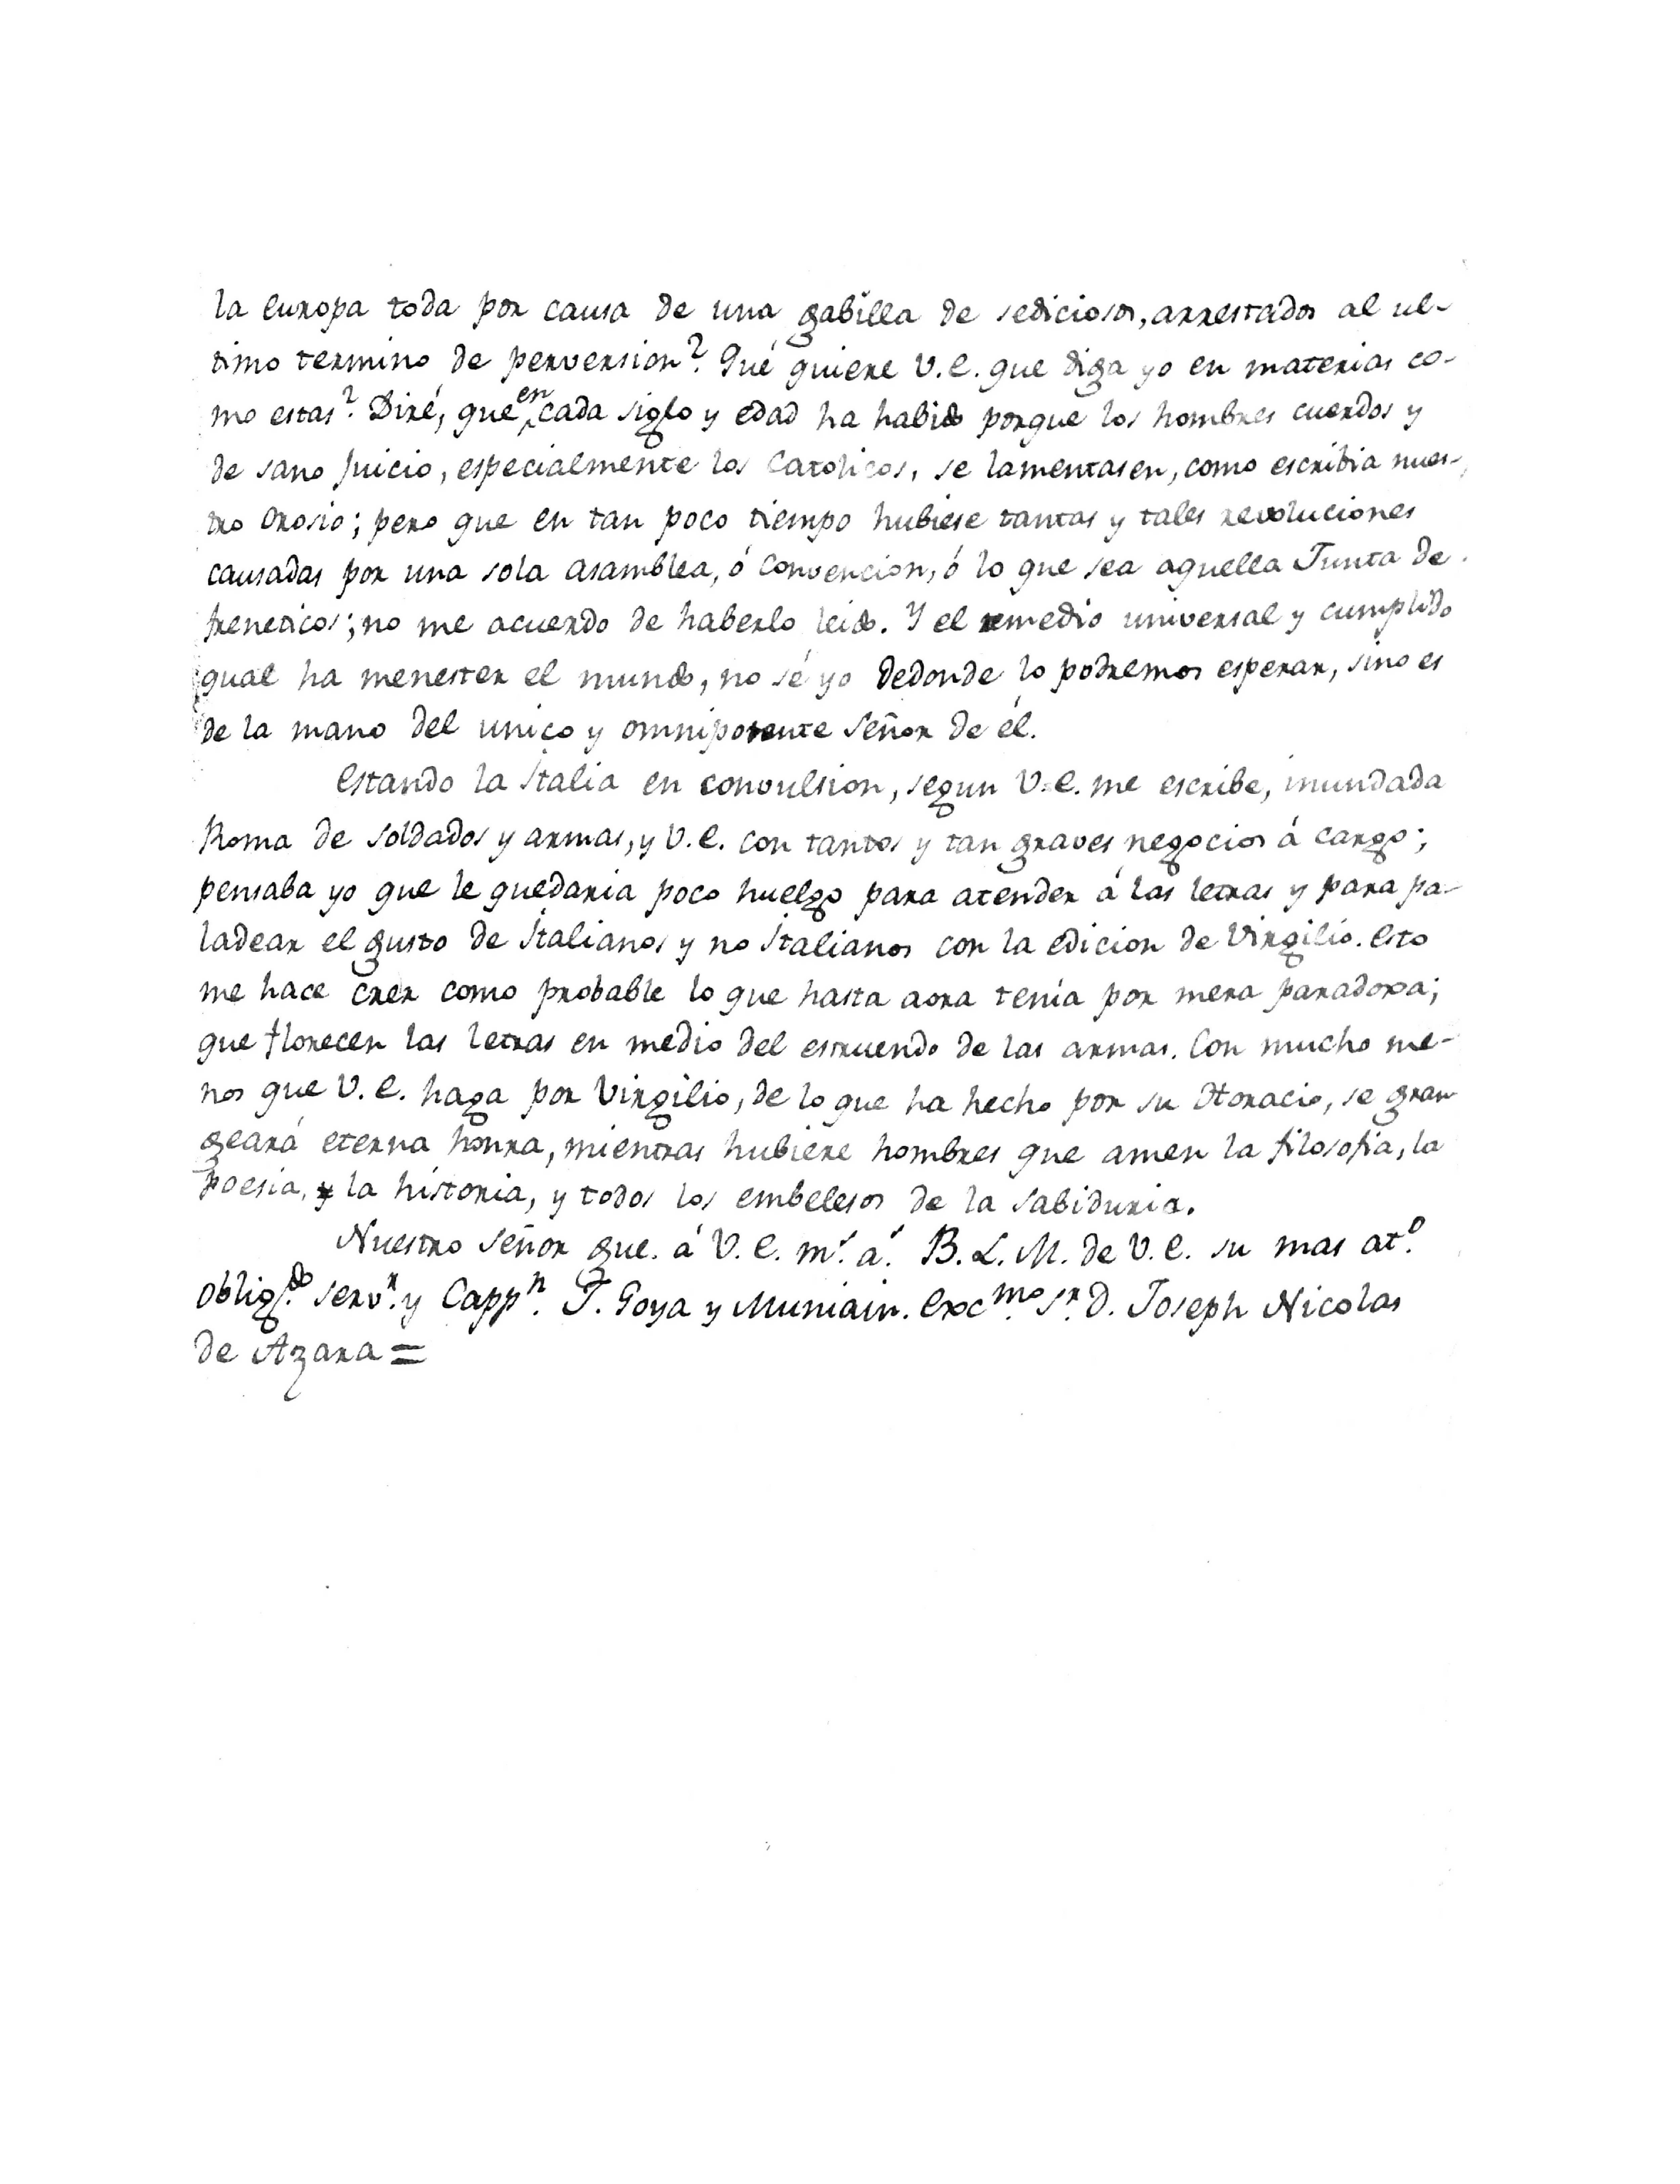 la Europa toda por causa de una gabilla de sediciosos, arrestados al ul-
timo termino de perversion? Qué quiere V.E. que diga yo en materias co-
mo estas? Diré, que en cada siglo y edad ha habido porque los hombres cuerdos y
de sano juicio, especialmente los Catolicos, se lamentasen, como escribia nues-
tro Orosio; pero que en tan poco tiempo hubiese tantas y tales revoluciones
causadas por una sola asamblea, ó convencion, ó lo que sea aquella Junta de
freneticos; no me acuerdo de haberlo leido. Y el remedio universal y cumplido
qual ha menester el mundo, no sé yo dedonde lo podremos esperar, sino es
de la mano del unico y omnipotente Señor de él.
Estando la Italia en convulsion, segun V.E. me escribe, inundada
Roma de soldados y armas, y V.E. con tantos y tan graves negocios á cargo;
pensaba yo que le quedaria poco huelgo para atender á las letras y para pa-
ladear el gusto de Italianos y no Italianos con la edicion de Virgilio. Esto
me hace crer como probable lo que hasta aora tenia por mera paradoxa;
que florecen las letras en medio del estruendo de las armas. Con mucho me-
nos que V.E. haga por Virgilio, de lo que ha hecho por su Horacio, se gran
geará eterna honra, mientras hubiere hombres que amen la filosofia, la
poesia, y la historia, y todos los embelesos de la sabiduria.
Nuestro Señor gue. á V.E. m.s a.s B.L.M. de V.E. su mas at.o
oblig.do serv.r y Capp.n J. Goya y Muniain. Exc.mo S.r D. Joseph Nicolas
de Azara =